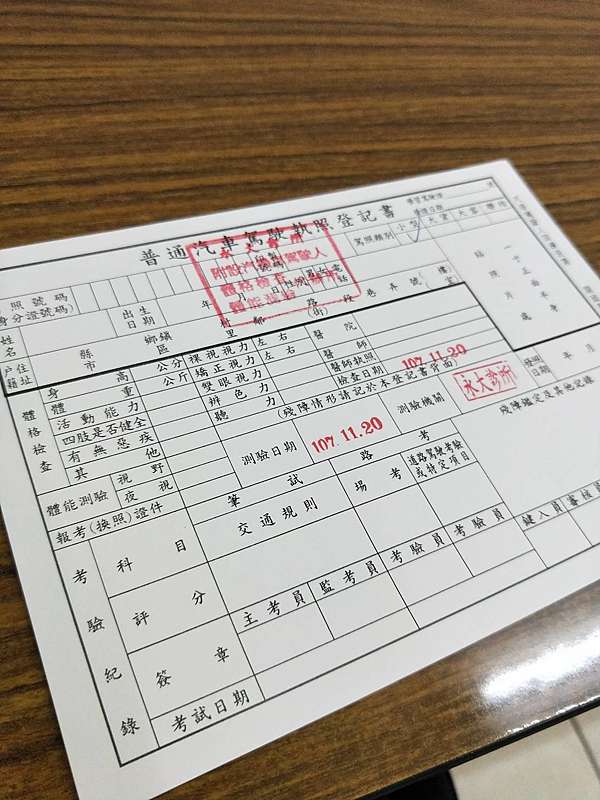 普通汽車駕駛執照登記書
駕照類別 小型 大貨 大客 聯結
照號碼
身分證號碼)
出生
日期
年 月 日 性別 電話
姓名
戶籍 住址
縣
市
鄉鎮
區
村
里
鄰
路
(街)
段 巷 弄 號
樓
室
永大診所
附設汽車駕駛人
體格檢查
體能測驗
一寸正面半身
貼牌片處
體格檢查
身高 公分
體重 公斤
活動能力
四肢是否健全
有無惡疾
其他
裸視視力 左 右
矯正視力 左 右
雙眼視力
辨色力
聽力
醫院
醫師
醫師執照
檢查日期 107.11.20
(殘障情形請記於本登記書背面)
體能測驗
視野
夜視
測驗日期 107.11.20
測驗機關 永大診所
發照
日期
年 月
殘障鑑定及其他記錄
報考(換照)證件
考驗紀錄
科目
筆試
交通規則
路考
場考
道路駕駛考驗
或特定項目
評分
主考員 監考員 考驗員 考驗員
鍵入員 審核員
簽章
考試日期